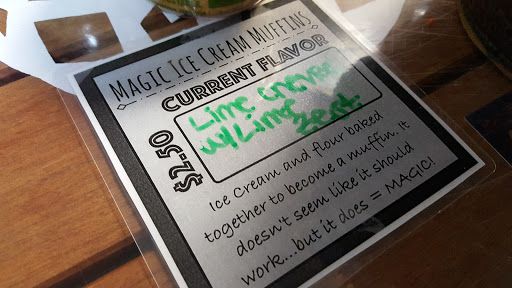 MAGIC ICE CREAM MUFFINS
CURRENT FLAVOR
$2.50
Lime
w/Lime
Zest
Ice Cream and flour baked
together to become a muffin. It
doesn't seem like it should
work...but it does = MAGIC!